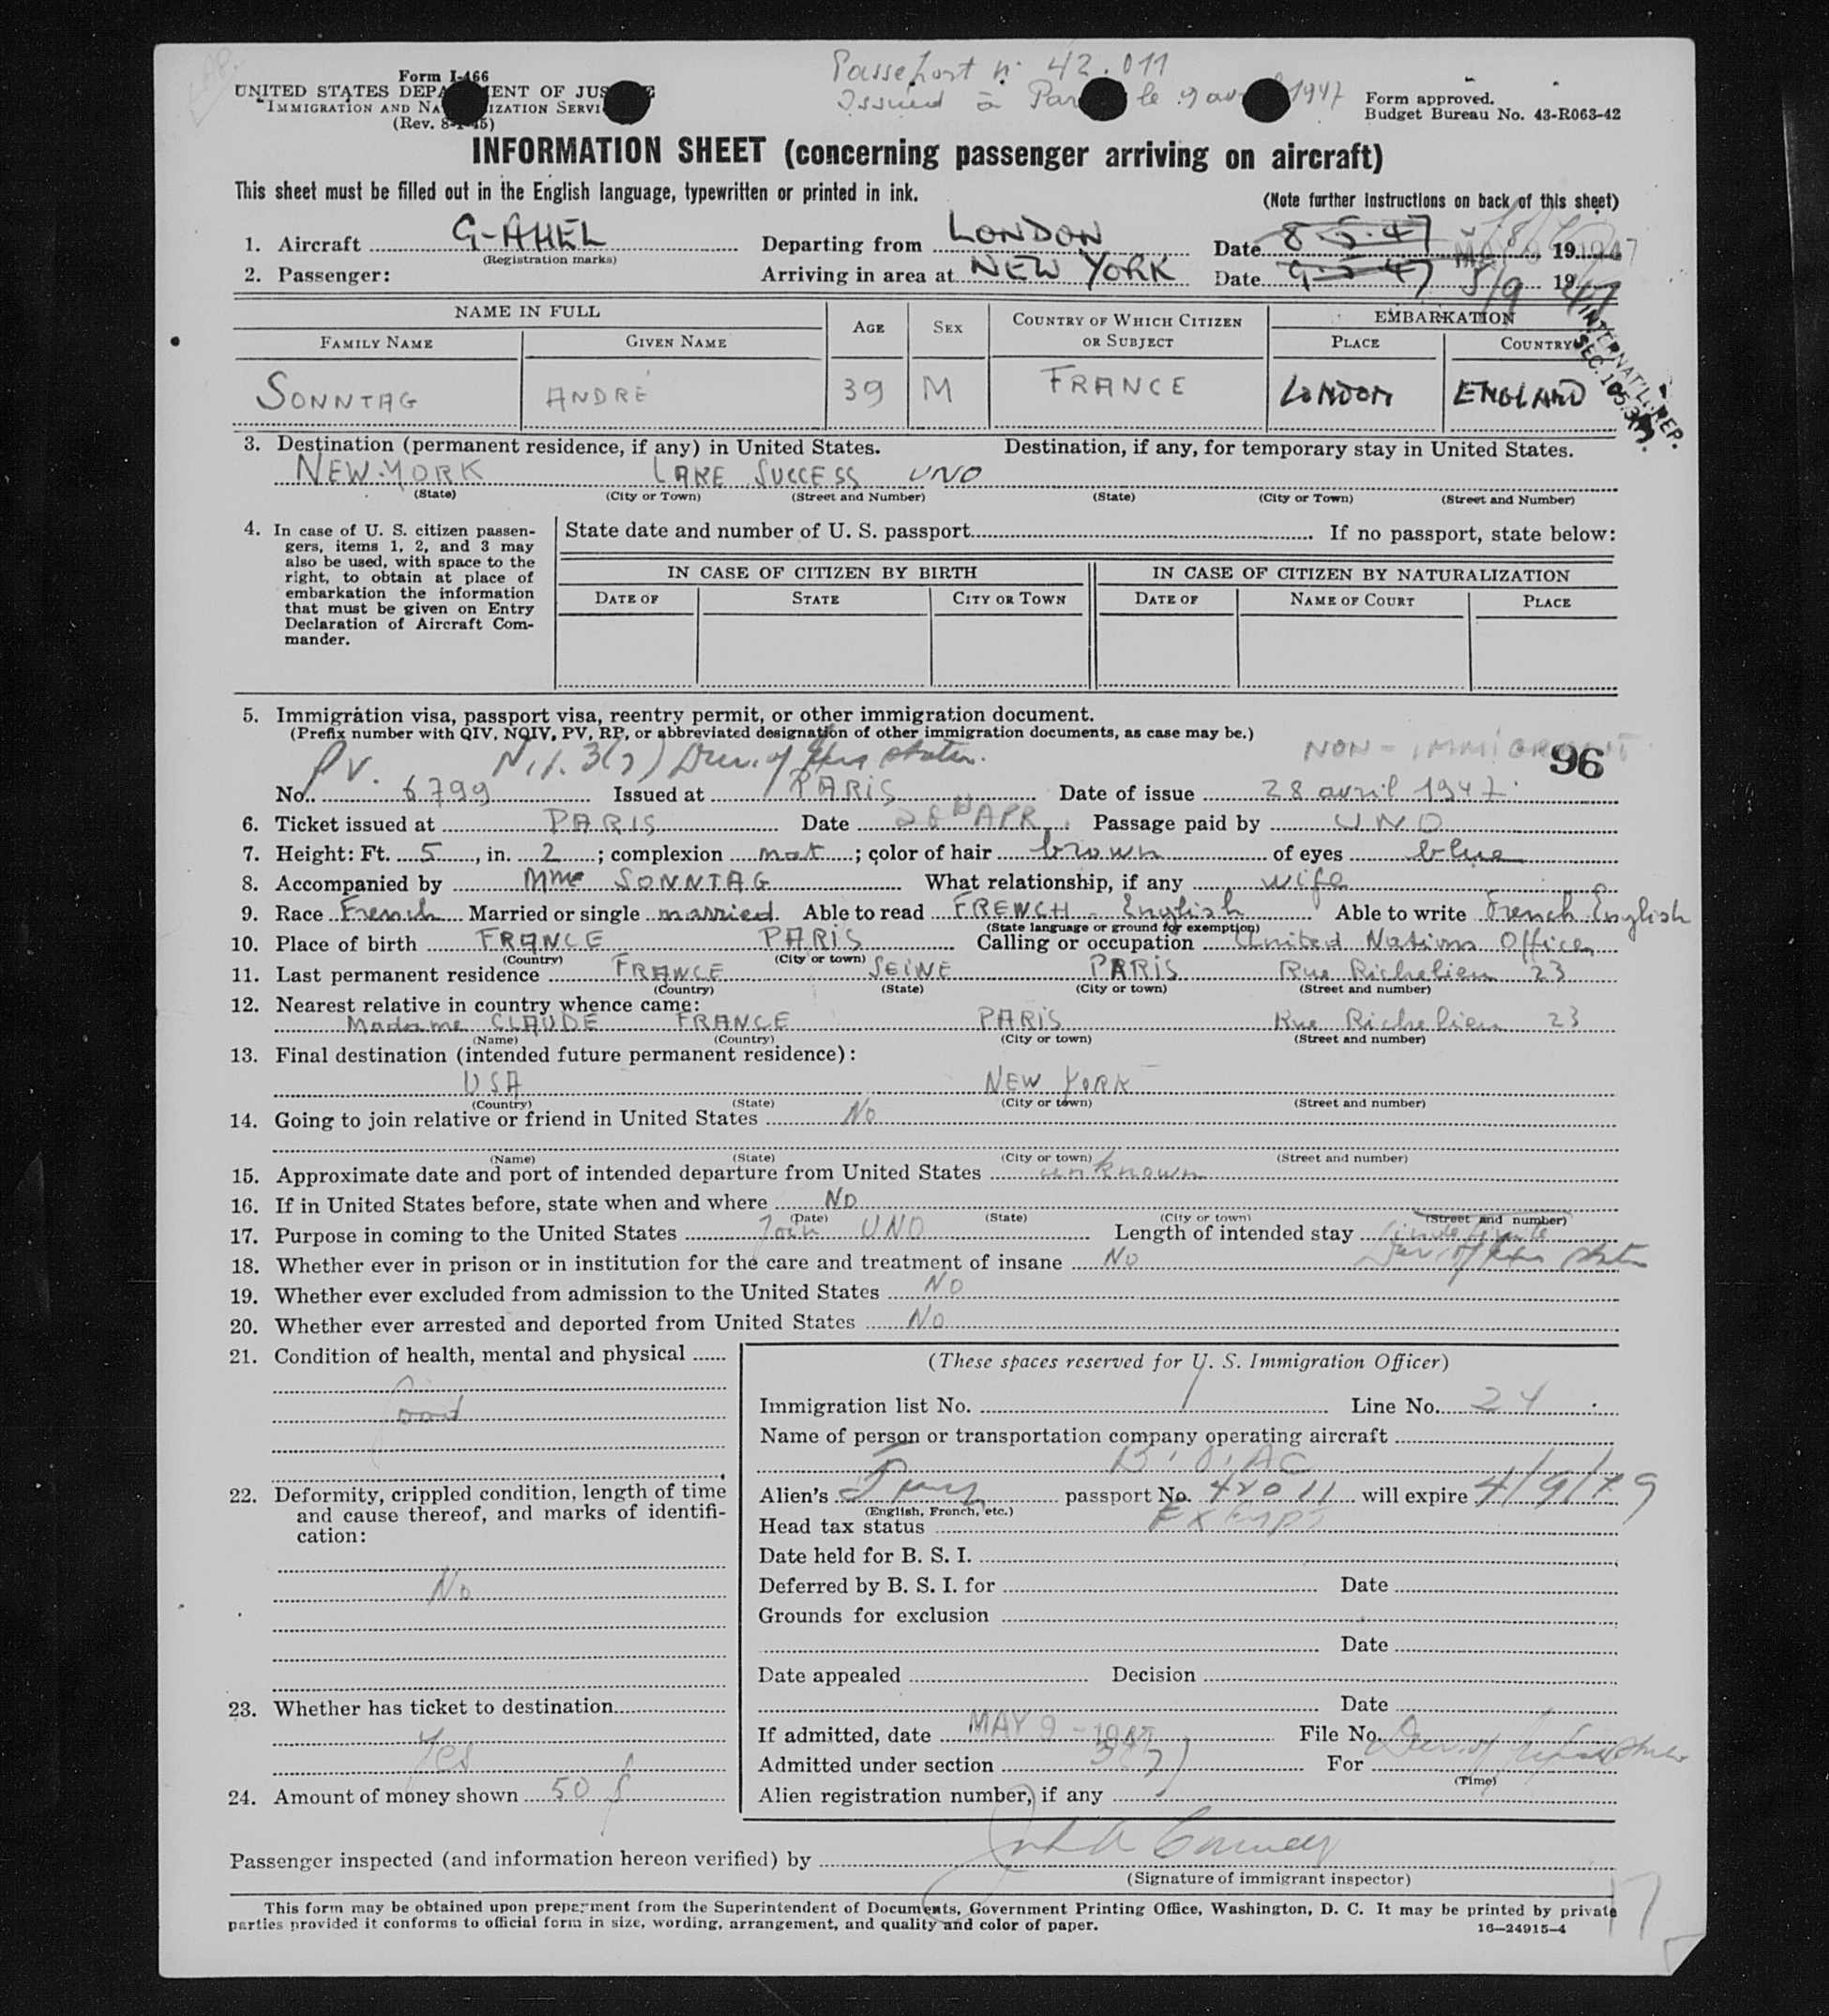 Passeport n° 42.011
Issued à Par le 9 av 1947
Form I-466
UNITED STATES DEPARTMENT OF JUSTICE
IMMIGRATION AND NATURALIZATION SERVICE
(Rev. 8-1-45)
Form approved.
Budget Bureau No. 43-R063-42
INFORMATION SHEET (concerning passenger arriving on aircraft)
This sheet must be filled out in the English language, typewritten or printed in ink.
(Note further instructions on back of this sheet)
1. Aircraft G-AHEL Departing from LONDON Date 8-5-47 1947
(Registration marks)
2. Passenger: Arriving in area at NEW YORK Date 9-5-47 5/9 1947
NAME IN FULL AGE SEX COUNTRY OF WHICH CITIZEN OR SUBJECT EMBARKATION
FAMILY NAME GIVEN NAME PLACE COUNTRY
INTERNAT'L. REP.
SEC.
SONNTAG ANDRÉ 39 M FRANCE LONDON ENGLAND
3. Destination (permanent residence, if any) in United States. Destination, if any, for temporary stay in United States.
NEW-YORK LAKE SUCCESS UNO
(State) (City or Town) (Street and Number) (State) (City or Town) (Street and Number)
4. In case of U. S. citizen passen-
gers, items 1, 2, and 3 may
also be used, with space to the
right, to obtain at place of
embarkation the information
that must be given on Entry
Declaration of Aircraft Com-
mander.
State date and number of U. S. passport If no passport, state below:
IN CASE OF CITIZEN BY BIRTH IN CASE OF CITIZEN BY NATURALIZATION
DATE OF STATE CITY OR TOWN DATE OF NAME OF COURT PLACE
5. Immigration visa, passport visa, reentry permit, or other immigration document.
(Prefix number with QIV, NQIV, PV, RP, or abbreviated designation of other immigration documents, as case may be.)
NON-IMMIGRANT 96
PV. 3(7) Dur. of status.
No. 6799 Issued at PARIS Date of issue 28 avril 1947
6. Ticket issued at PARIS Date 28th APR. Passage paid by UNO
7. Height: Ft. 5, in. 2; complexion mat; color of hair brown of eyes blue
8. Accompanied by Mme SONNTAG What relationship, if any wife
9. Race French Married or single married. Able to read FRENCH - English Able to write French English
(State language or ground for exemption)
10. Place of birth FRANCE PARIS Calling or occupation United Nations Officer
(Country) (City or town)
11. Last permanent residence FRANCE SEINE PARIS Rue Richelieu 23
(Country) (State) (City or town) (Street and number)
12. Nearest relative in country whence came:
Madame CLAUDE FRANCE PARIS Rue Richelieu 23
(Name) (Country) (City or town) (Street and number)
13. Final destination (intended future permanent residence):
USA NEW YORK
(Country) (State) (City or town) (Street and number)
14. Going to join relative or friend in United States No
(Name) (State) (City or town) (Street and number)
15. Approximate date and port of intended departure from United States unknown
16. If in United States before, state when and where NO
(Date) (State) (City or town) (Street and number)
17. Purpose in coming to the United States Join UNO Length of intended stay
18. Whether ever in prison or in institution for the care and treatment of insane NO
19. Whether ever excluded from admission to the United States NO
20. Whether ever arrested and deported from United States No
21. Condition of health, mental and physical
Good
22. Deformity, crippled condition, length of time
and cause thereof, and marks of identifi-
cation:
No
23. Whether has ticket to destination
Yes
24. Amount of money shown 50 $
(These spaces reserved for U. S. Immigration Officer)
Immigration list No. 1 Line No. 24
Name of person or transportation company operating aircraft
B.O.AC
Alien's passport No. 42011 will expire 4/9/49
(English, French, etc.)
Head tax status Exempt
Date held for B. S. I.
Deferred by B. S. I. for Date
Grounds for exclusion
Date
Date appealed Decision
Date
If admitted, date MAY 9 - 1947 File No.
Admitted under section 3(7) For
(Time)
Alien registration number, if any
Passenger inspected (and information hereon verified) by
(Signature of immigrant inspector)
This form may be obtained upon prepayment from the Superintendent of Documents, Government Printing Office, Washington, D. C. It may be printed by private
parties provided it conforms to official form in size, wording, arrangement, and quality and color of paper.
16—24915-4